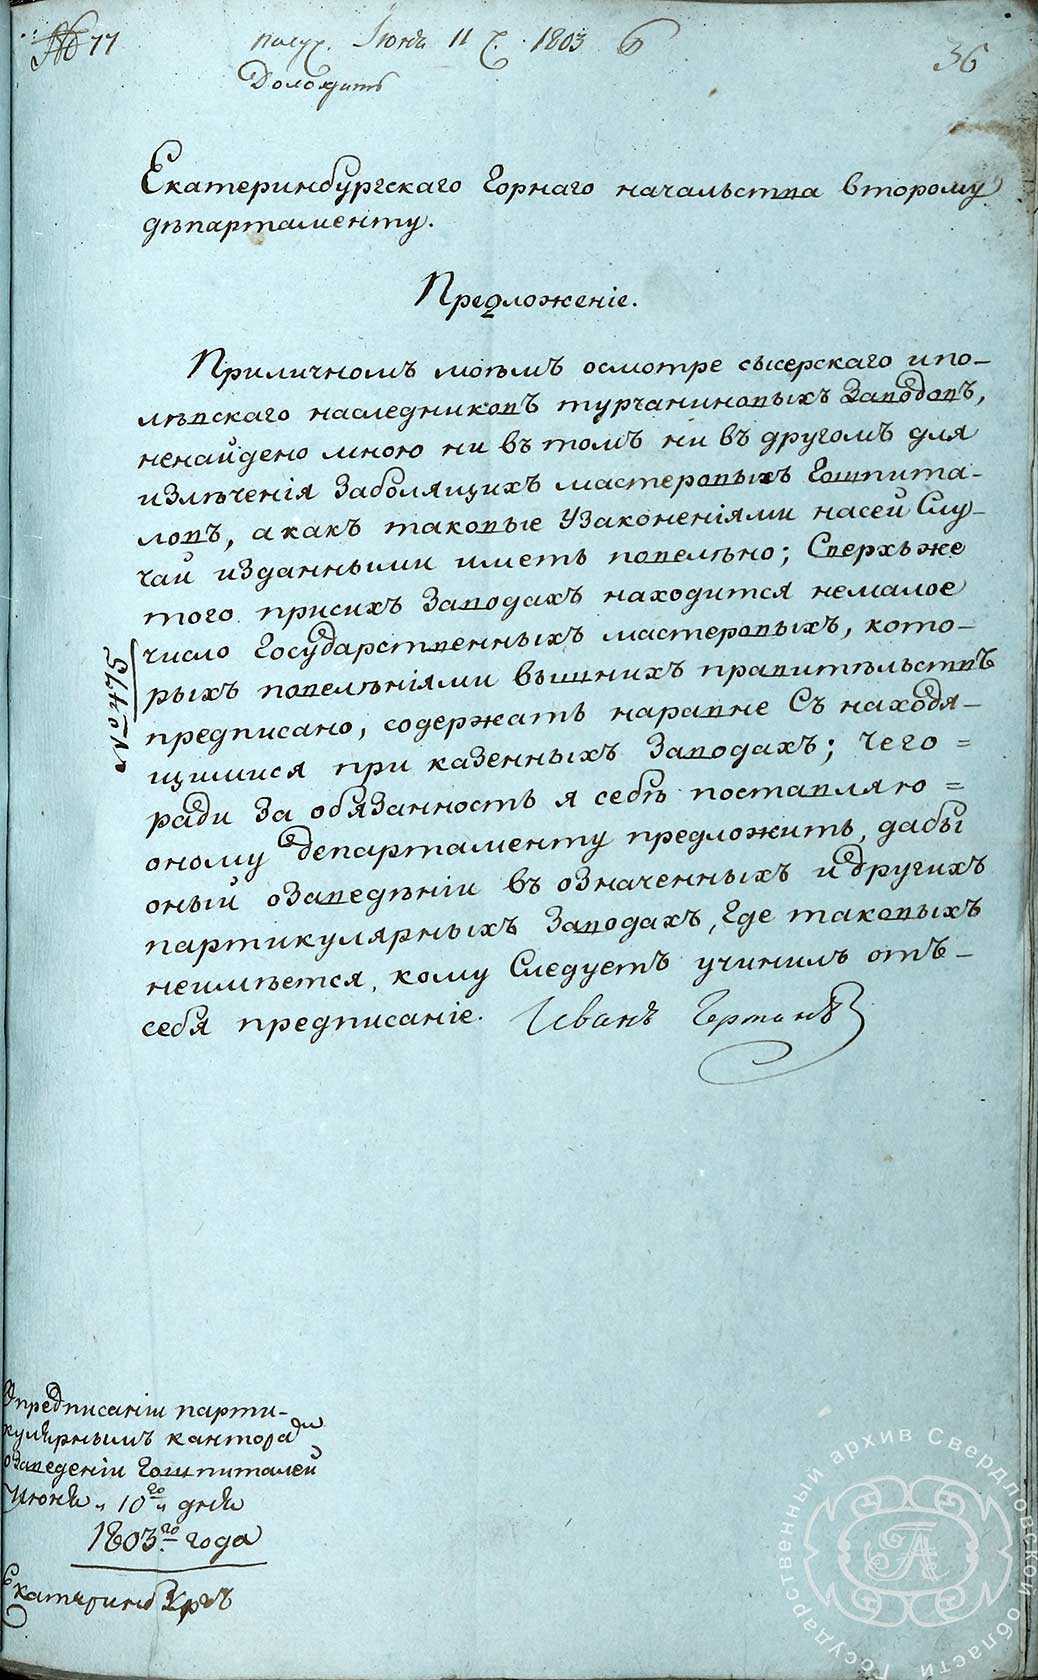 № 77
получ. Июня 11 ч. 1803
36
Доложить
Екатеринбургскаго Горнаго начальства второму
департаменту.
Предложеніе.
При личномъ моемъ осмотре сысерскаго и по-
левскаго наследниковъ турчаниновыхъ Заводовъ,
ненайдено мною ни въ томъ ни въ другомъ для
излѣченія Заболящихъ мастеровыхъ Гошпита-
ловъ, а какъ таковые Узаконеніями насей Слу-
чай изданными иметь повелѣно; Сверхъ же
того присихъ Заводахъ находится немалое
число Государственныхъ мастеровыхъ, кото-
рыхъ повелѣніями вышнихъ правительствъ
предписано, содержать наравне Съ находя-
щимися при казенныхъ Заводахъ; Чего =
ради За обязанность я себѣ поставляю =
оному департаменту предложить, дабы
оный оЗаведѣніи въ означенныхъ и другихъ
партикулярныхъ Заводахъ, Где таковыхъ
неимѣется, кому Следуетъ учинилъ отъ-
себя предписаніе. Иванъ Германъ
№ 475
О предписаніи парти-
кулярнымъ канторамъ
о Заведеніи Гошпиталей
Июня „ 10го „ дня
1803го года
Екатеринбургъ
Государственный архив Свердловской области
ГА